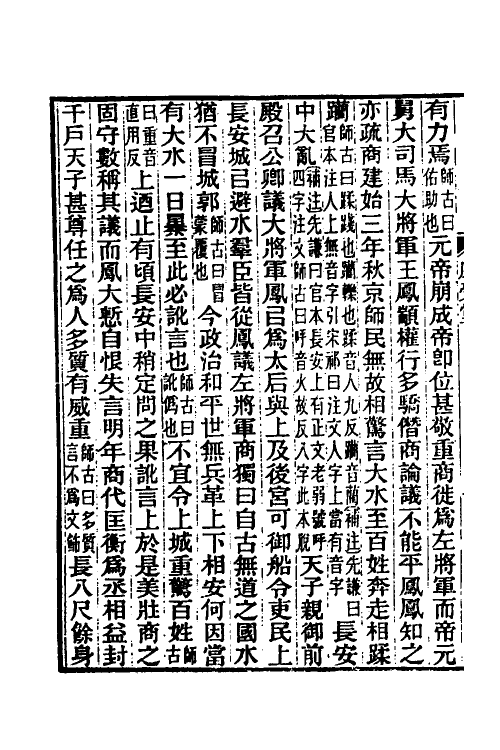 有力焉師古曰佑助也元帝崩成帝卽位甚敬重商徙爲左將軍而帝元
舅大司馬大將軍王鳳顓權行多驕僭商論議不能平鳳鳳知之
亦疏商建始三年秋京師民無故相驚言大水至百姓奔走相蹂
躪師古曰蹂踐也躪轢也蹂音人九反躪音藺補注先謙曰官本注人上無音字引宋祁曰注文人字上當有音字長安
中大亂補注先謙曰官本長安上有正文老弱號呼四字注文師古曰呼音火故反八字此本脫天子親御前
殿召公卿議大將軍鳳㠯爲太后與上及後宮可御船令吏民上
長安城㠯避水羣臣皆從鳳議左將軍商獨曰自古無道之國水
猶不冒城郭師古曰冒蒙覆也今政治和平世無兵革上下相安何因當
有大水一日暴至此必訛言也師古曰訛僞也不宜令上城重驚百姓師古
曰重音直用反上迺止有頃長安中稍定問之果訛言上於是美壯商之
固守數稱其議而鳳大慙自恨失言明年商代匡衡爲丞相益封
千戶天子甚尊任之爲人多質有威重師古曰多質言不爲文飾長八尺餘身